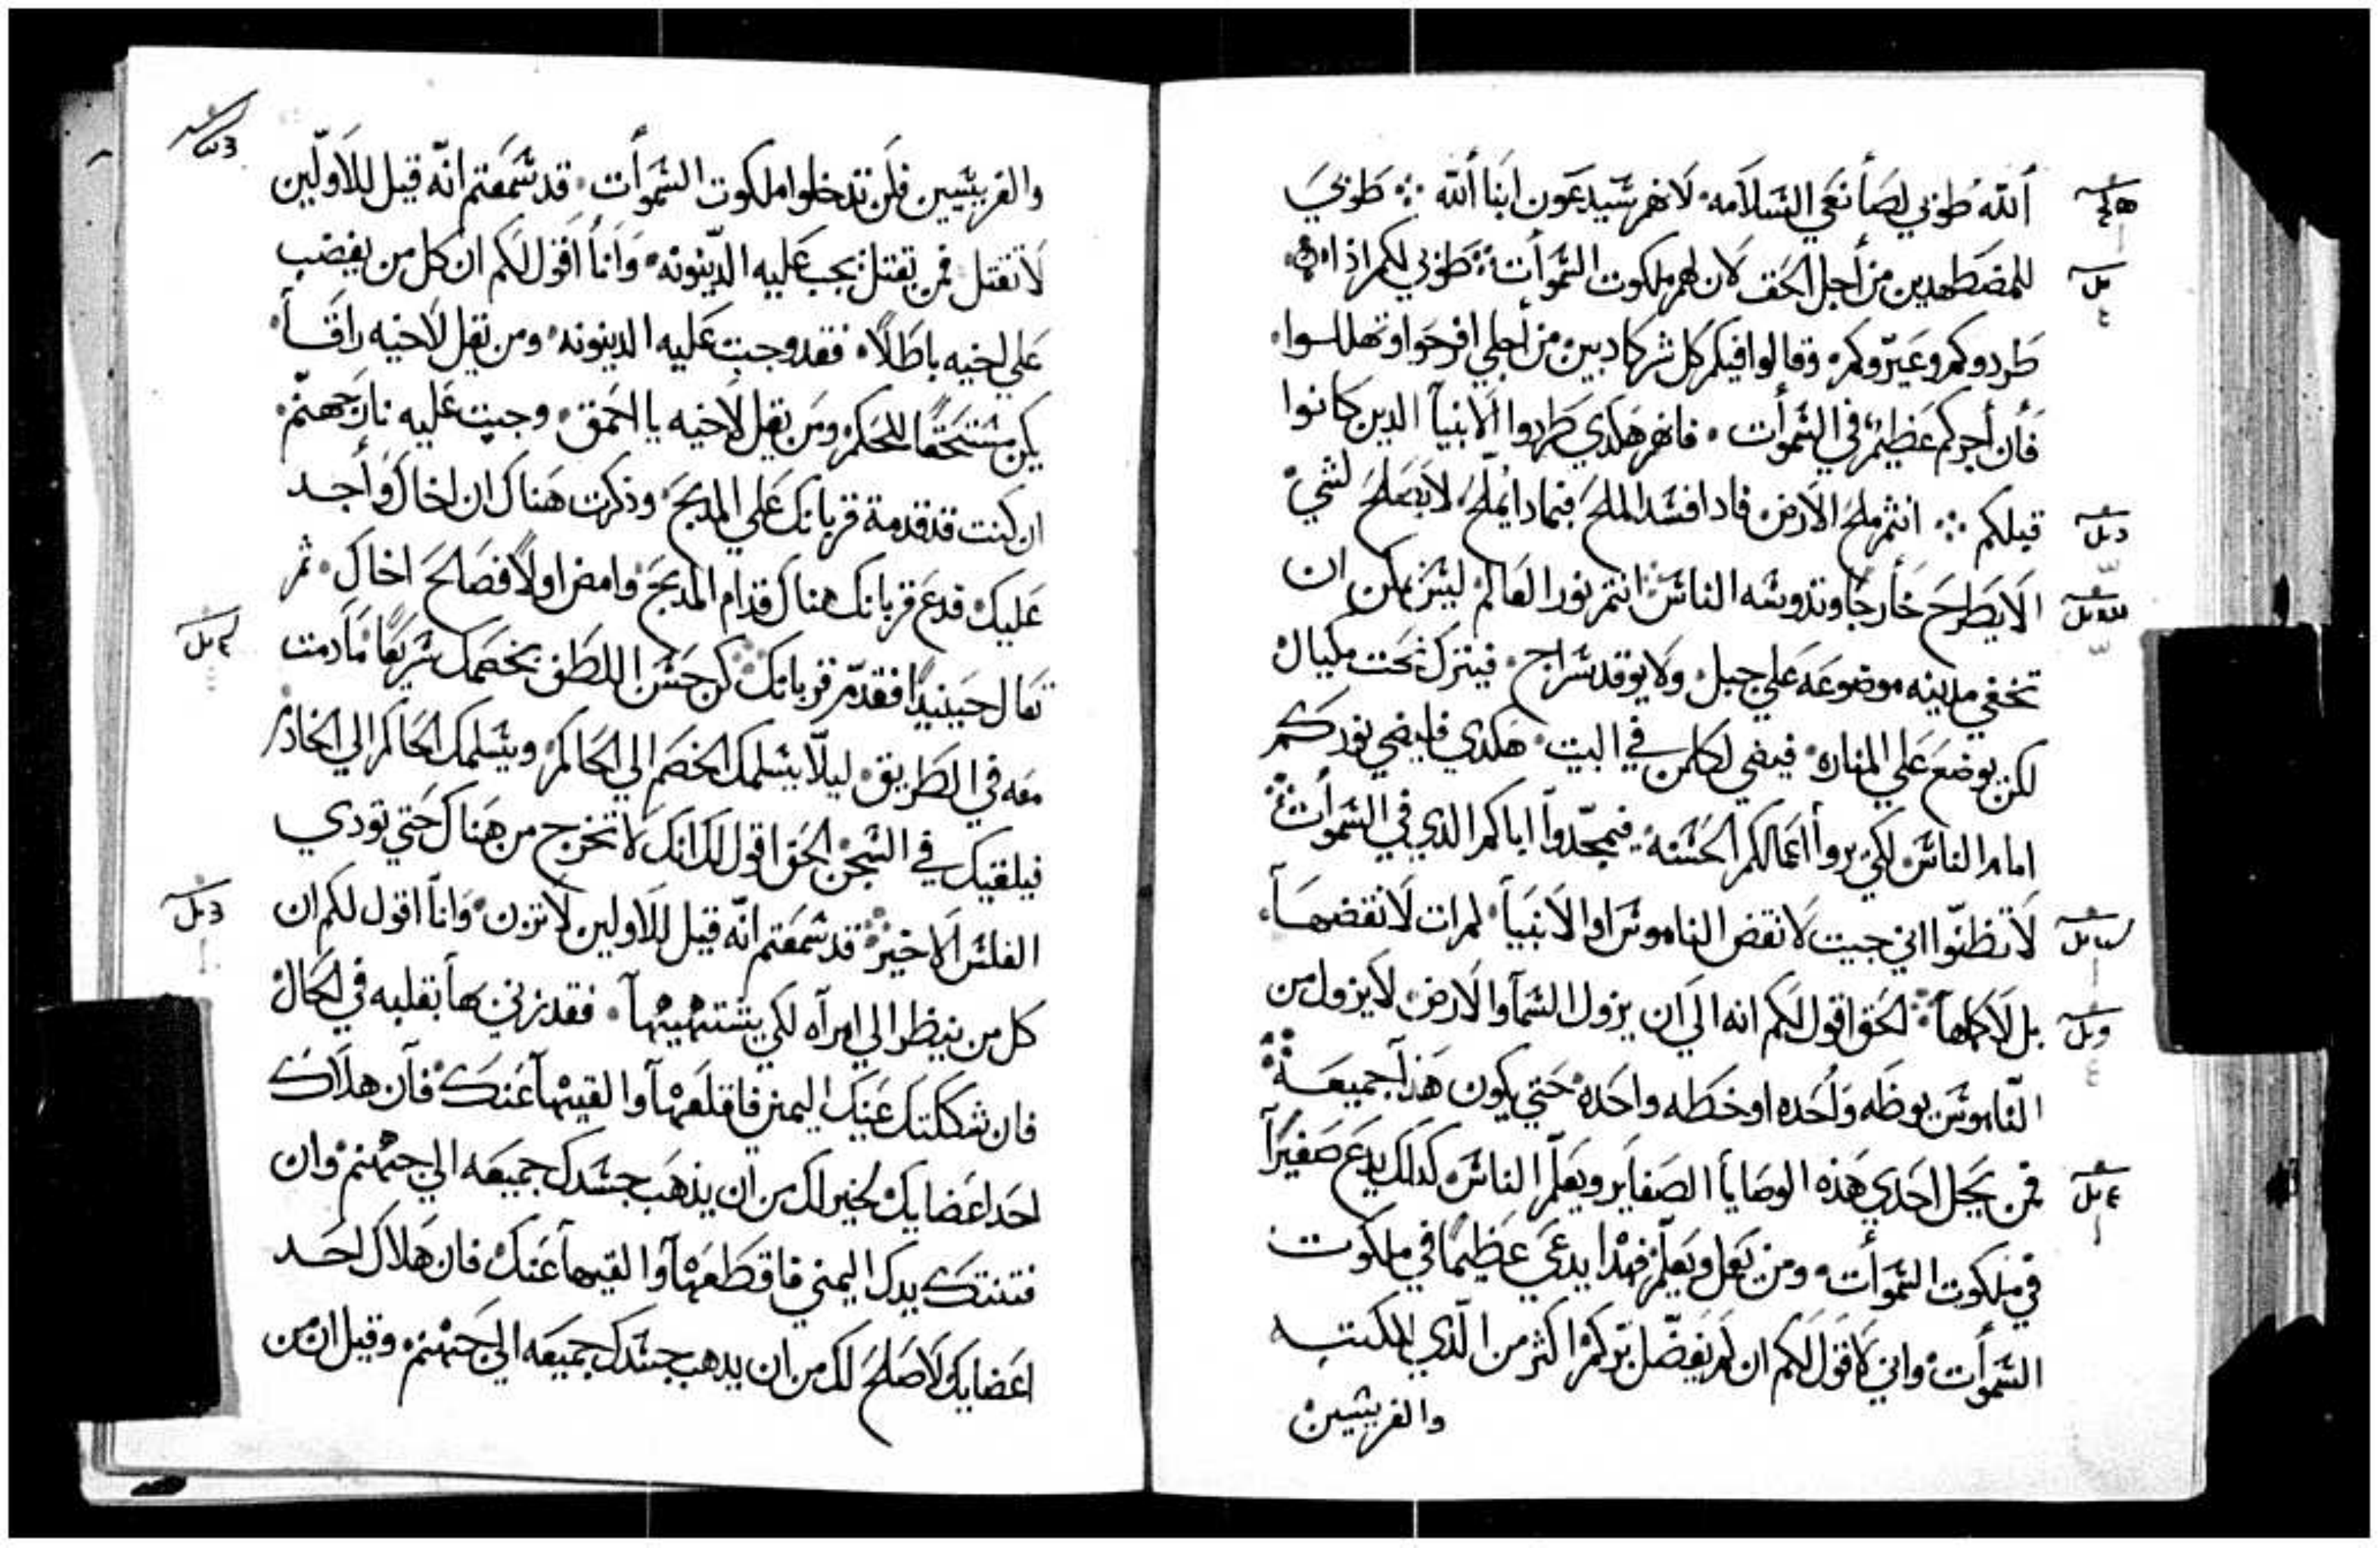 ألله طوبي لصأنعي السلامه لانهم سيدعون ابنا ألله طوبي
للمضطهدين من أجل الحق لان لهم ملكوت السموأت طوبي لكم اذا
طردوكم وعيروكم وقالوا فيكم كل شر كادبين من أجلي افرحوا وتهللوا
فأن أجركم عظيم في السموأت فانهم هكدي طردوا الانبيآ الدين كانوا
قبلكم انتم ملح الارض فادا فسد الملح فبمادا يملح لا يصلح لشي
الا يطرح خأرجا وتدوسه الناس انتم نور العالم ليس يمكن ان
تخفي مدينه موضوعه علي جبل ولا يوقد سراج فيترك تحت مكيال
لكن يوضع علي المناره فيضي لكلمن في البيت هكدي فليضي نوركم
امام الناس لكي يروأ اعمالكم الحسنه فيمجدوآ اباكم الذي في السموأت
لا تظنوا اني جيت لانقض الناموس او الانبيأ لم ات لانقضهآ
بل لاكملهآ الحق اقول لكم انه الي ان يزول السمآ والارض لا يزول من
الناموس يوطه وأحده او خطه واحده حتي يكون هذآ جميعه
فمن يحل احدي هذه الوصايأ الصغاير ويعلم الناس كدلك يدع صغيرآ
في ملكوت السموأت ومن يعمل ويعلم فهدا يدعي عظيما في ملكوت
السموأت واني لاقول لكم ان لم يفضل بركم اكثر من الذي للكتبه
والفريسين
والفريسيين فلن تدخلوا ملكوت السموأت قد سمعتم انه قيل للاولين
لا تقتل فمن يقتل يجب عليه الدينونه وانأ اقول لكم ان كل من يغضب
علي اخيه باطلا فقد وجبت عليه الدينونه ومن يقل لاخيه راقآ
يكن مستحقا للحكم ومن يقل لاخيه يا احمق وجبت عليه نار جهنم
ان كنت قد قدمة قربانك علي المدبح وذكرت هناك ان اخاك وأجد
عليك فدع قربانك هناك قدام المدبح وامض اولا فصالح اخاك ثم
تعال حينيدا فقدم قربانك كن حسن اللطف بخصمك سريعا مآدمت
معه في الطريق ليلا يسلمك الخصم الي الحاكم ويسلمك الحاكم الي الخادم
فيلقيك في السجن الحق اقول لك انك لا تخرج من هناك حتي تودي
الفلس الاخير قد سمعتم انه قيل للاولين لا تزن وانآ اقول لكم ان
كل من ينظر الي امرآه لكي يشتهيهآ فقد زني بهأ بقلبه في الحال
فان شككتك عينك اليمني فاقلعهآ والقيهآ عنك فآن هلاك
احد اعضايك لخير لك من ان يذهب جسدك جميعه الي جهنم وان
فتنتك يدك اليمني فاقطعهآ والقيهأ عنك فان هلاك احد
اعضايك لاصلح لك من ان يدهب جسدك جميعه الي جهنم وقيل ان من